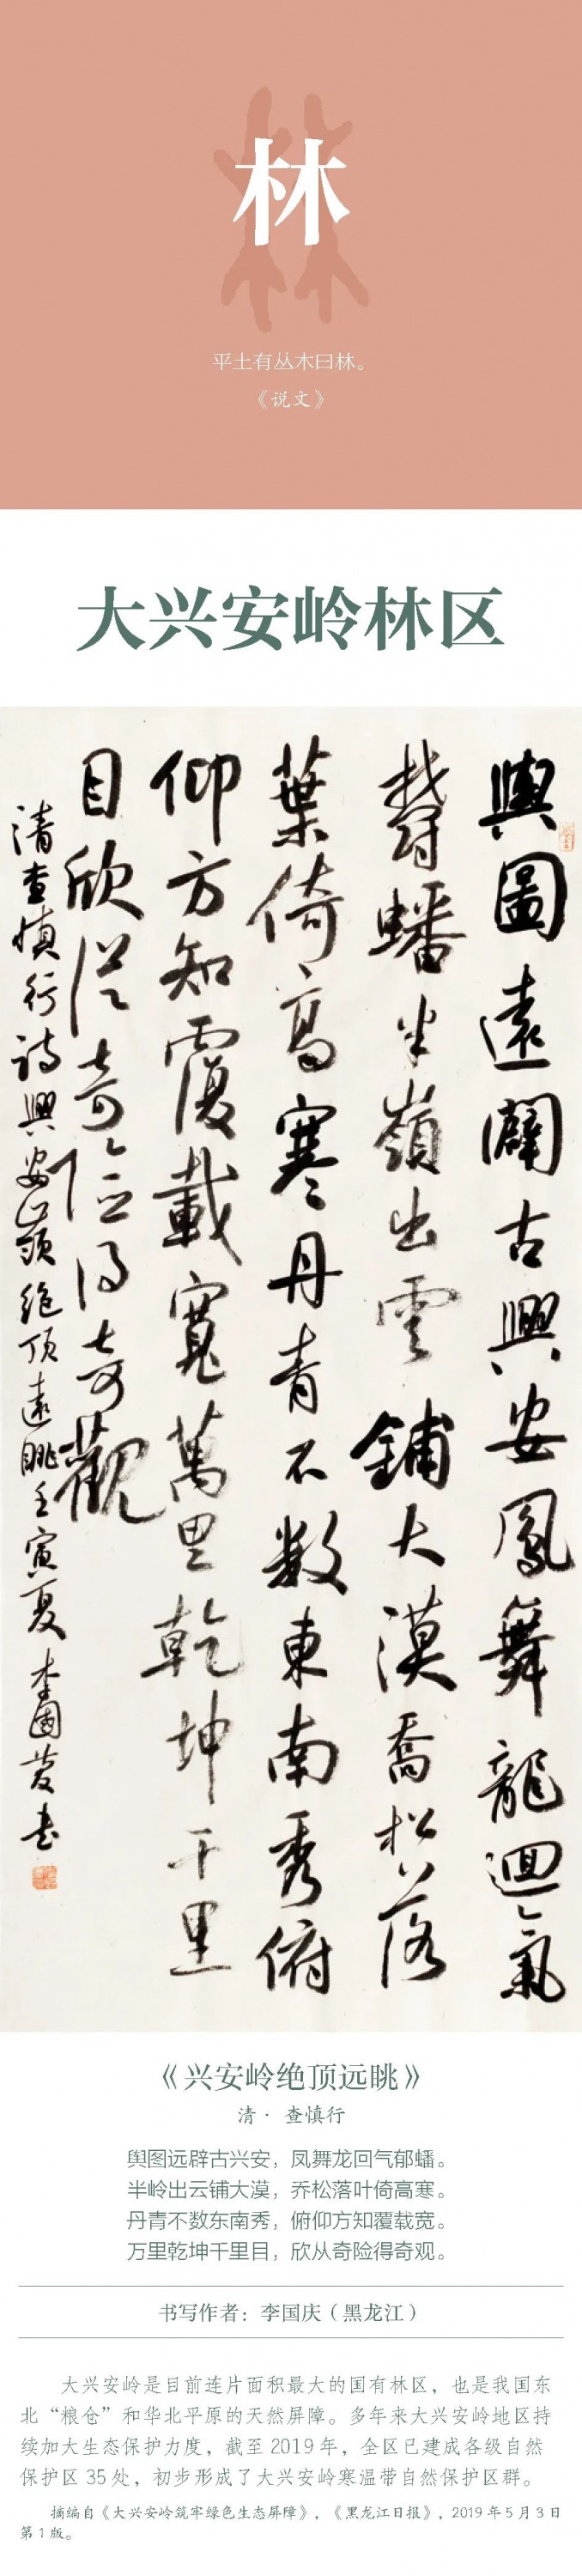 林
平土有丛木曰林。
《说文》
大兴安岭林区
輿圖遠闢古興安鳳舞龍迴氣
欝蟠半嶺出雲鋪大漠喬松落
葉倚高寒丹青不数東南秀俯
仰方知覆載寬萬里乾坤千里
目欣從奇險得奇觀
清查慎行詩興安嶺絶頂遠眺壬寅夏李國慶書
《兴安岭绝顶远眺》
清·查慎行
舆图远辟古兴安，凤舞龙回气郁蟠。
半岭出云铺大漠，乔松落叶倚高寒。
丹青不数东南秀，俯仰方知覆载宽。
万里乾坤千里目，欣从奇险得奇观。
书写作者：李国庆（黑龙江）
大兴安岭是目前连片面积最大的国有林区，也是我国东
北“粮仓”和华北平原的天然屏障。多年来大兴安岭地区持
续加大生态保护力度，截至2019年，全区已建成各级自然
保护区35处，初步形成了大兴安岭寒温带自然保护区群。
摘编自《大兴安岭筑牢绿色生态屏障》，《黑龙江日报》，2019年5月3日
第1版。